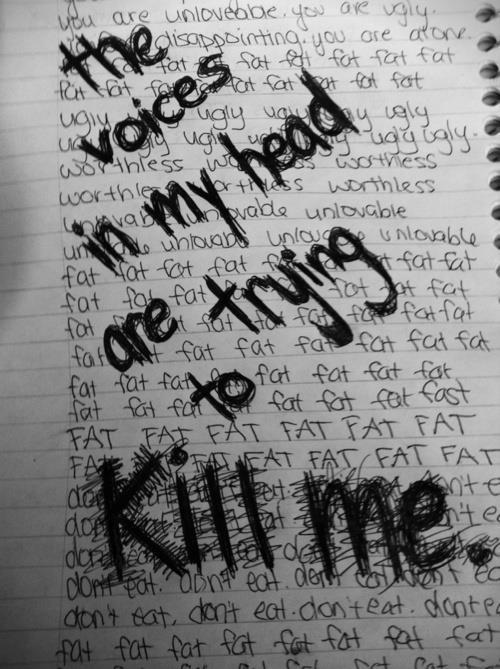 you are unloveable. you are ugly.
disappointing. you are alone.
fat fat fat fat fat fat
fat fat fat fat fat fat
ugly ugly ugly ugly
ugly ugly ugly ugly.
worthless worthless
worthless worthless worthless
unlovable unlovable
unlovable unlovable unlovable
fat fat fat fat fat fat
fat fat fat fat fat fat
fat fat fat fat fat fat
fat fat fat fat fat fat
fat fat fat fat fat fat
fat fat fat fat fat fast
FAT FAT FAT FAT FAT FAT
FAT FAT FAT FAT FAT
dont eat. don't eat. dont eat
don't eat, don't eat. don't eat. dont e
fat fat fat fat fat fat fat
the
voices
in my head
are trying
to
Kill me.